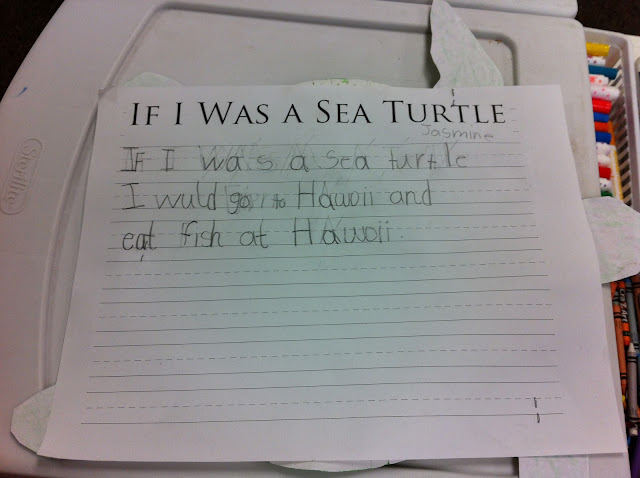 IF I WAS A SEA TURTLE
Jasmine
IF I was a sea turtle
I wuld go to Hawoii and
eat fish at Hawoii.
Sterilite